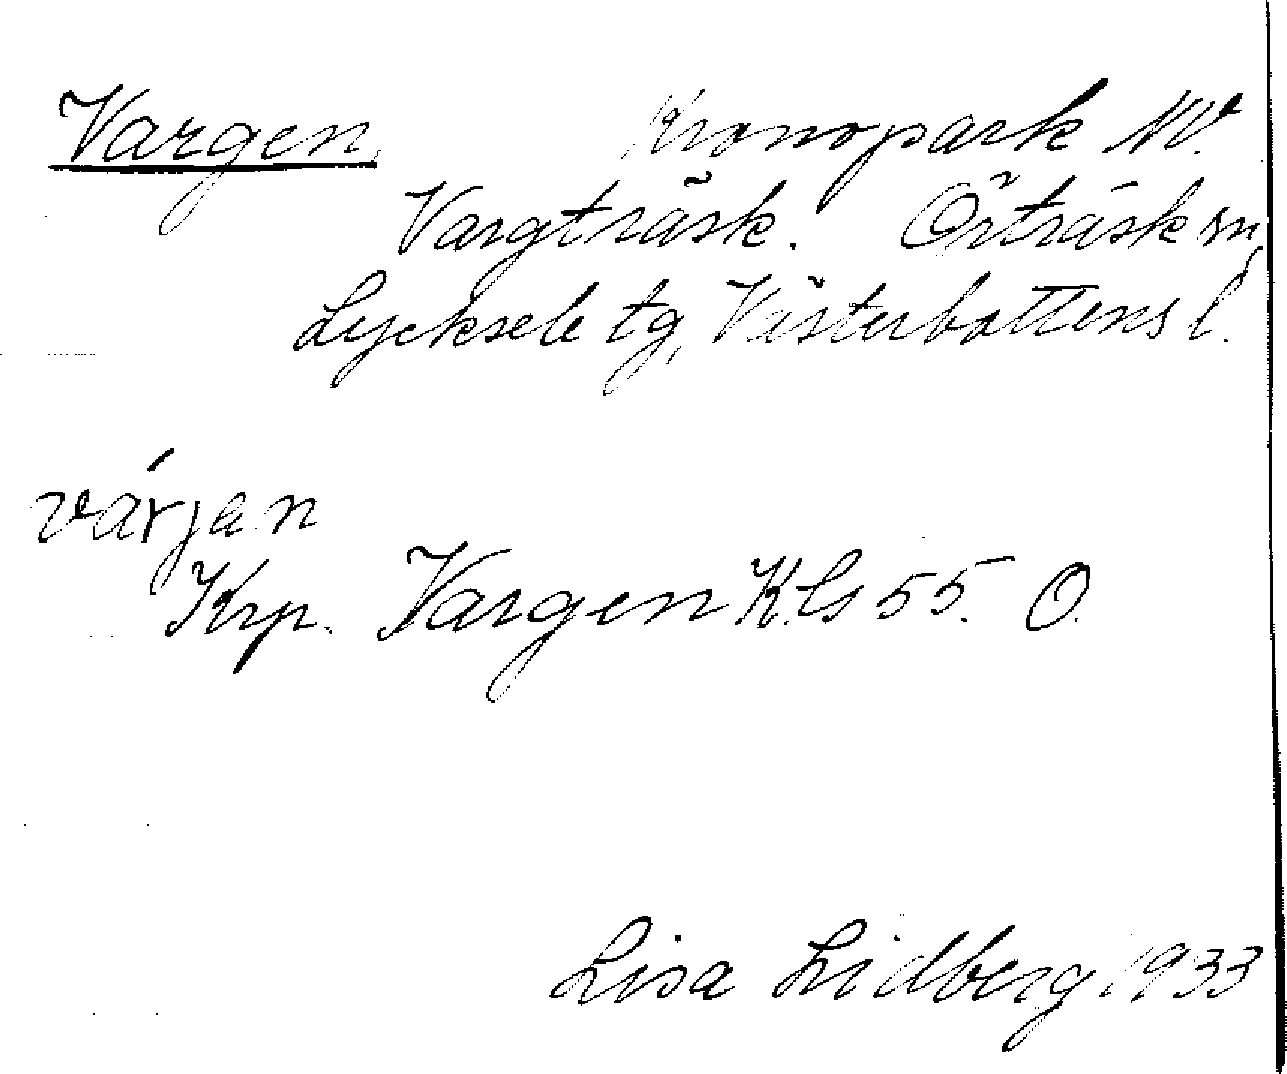 Vargen, Kronopark NV.
Vargträsk. Örträsk sn,
Lycksele tg, Västerbottens l.
várjan
Krp. Vargen K.G 55. O.
Lisa Lidberg 1933